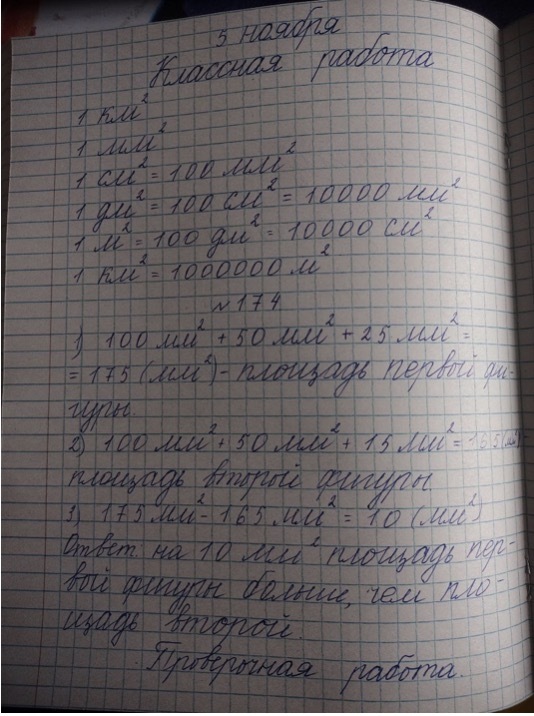 5 ноября
Классная работа
1 км²
1 мм²
1 см² = 100 мм²
1 дм² = 100 см² = 10000 мм²
1 м² = 100 дм² = 10000 см²
1 км² = 1000000 м²
№174
1) 100 мм² + 50 мм² + 25 мм² =
= 175 (мм²) - площадь первой фи-
гуры.
2) 100 мм² + 50 мм² + 15 мм² = 165 (мм²)
площадь второй фигуры
3) 175 мм² - 165 мм² = 10 (мм²)
Ответ на 10 мм² площадь пер-
вой фигуры больше, чем пло-
щадь второй.
Проверочная работа.